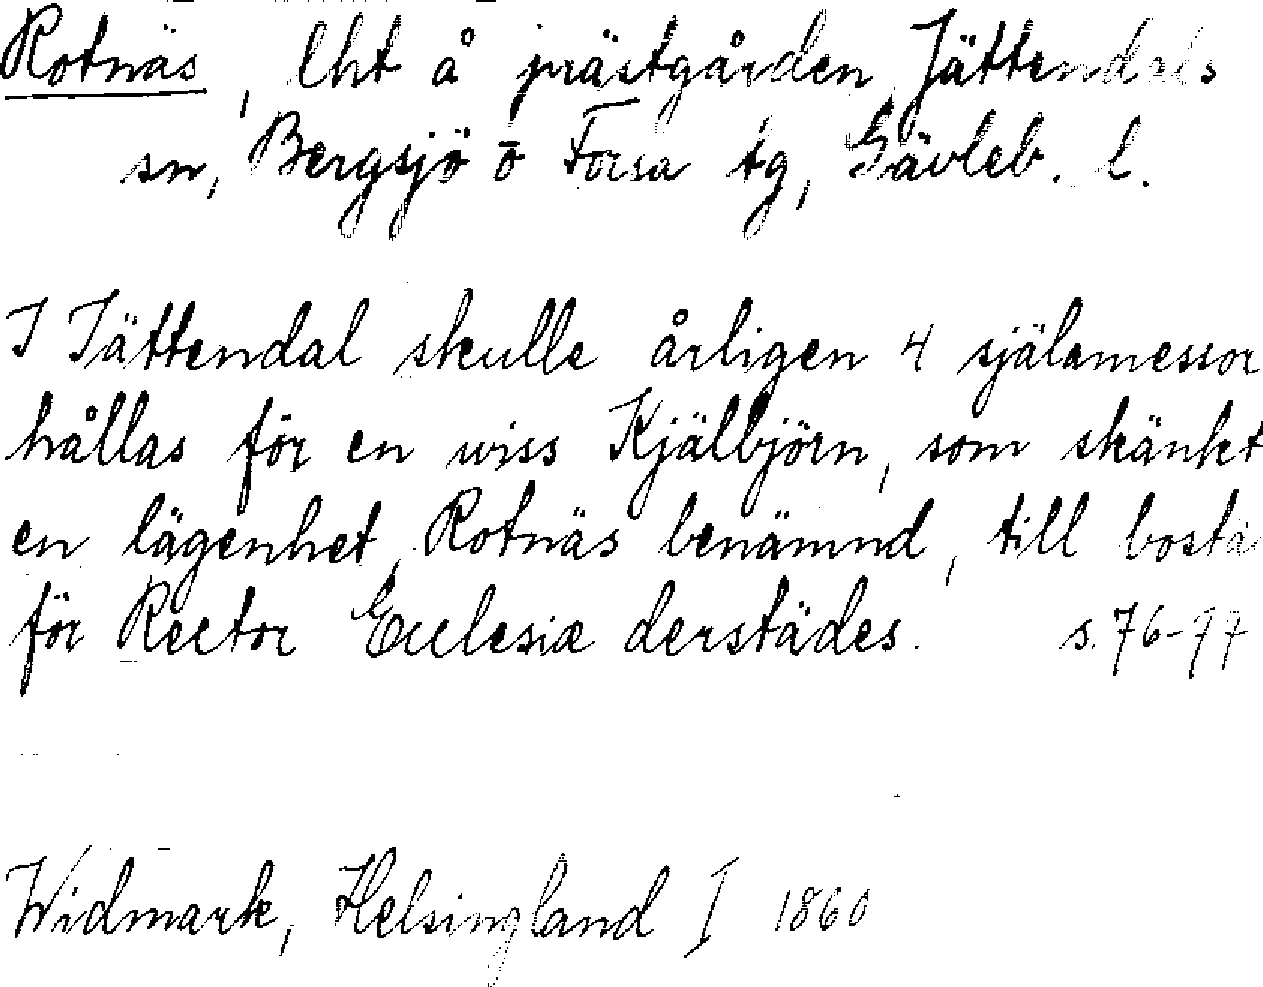 Rotnäs, lht å prästgården Jättendals
sn, Bergsjö o Forsa tg, Gävleb. l.
I Jättendal skulle årligen 4 själamessor
hållas för en wiss Kjälbjörn, som skänkt
en lägenhet, Rotnäs benämnd, till bostä
för Rector Ecclesiæ derstädes. s. 76-77
Widmark, Helsingland I 1860